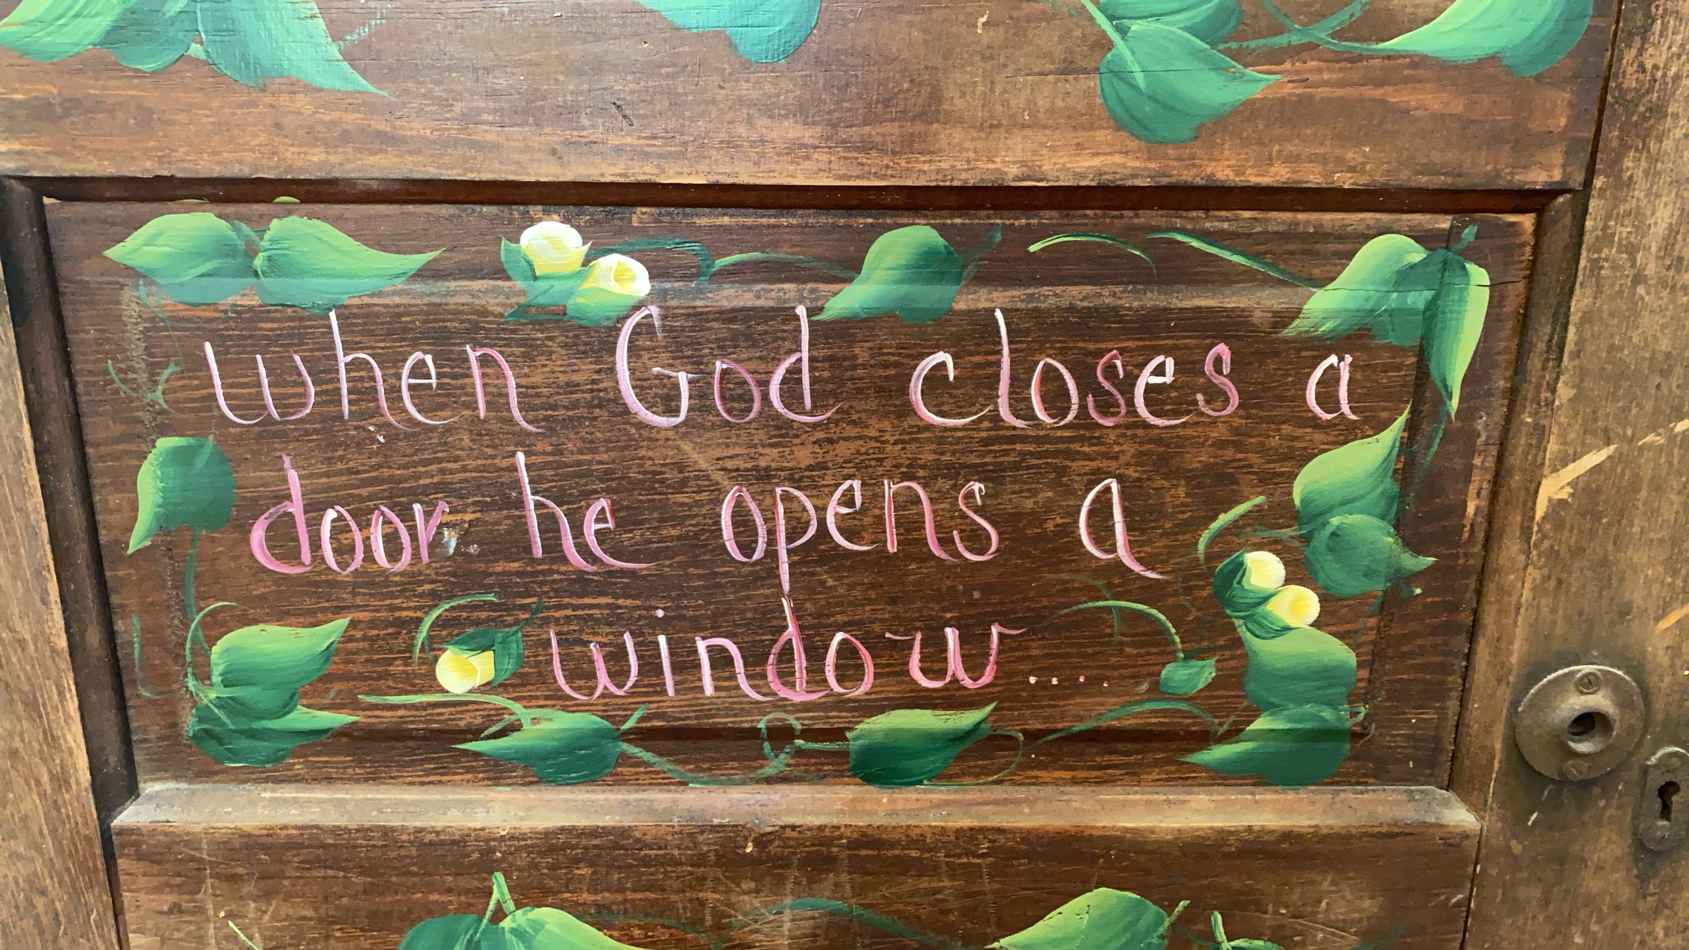 when God closes a
door he opens a
window....